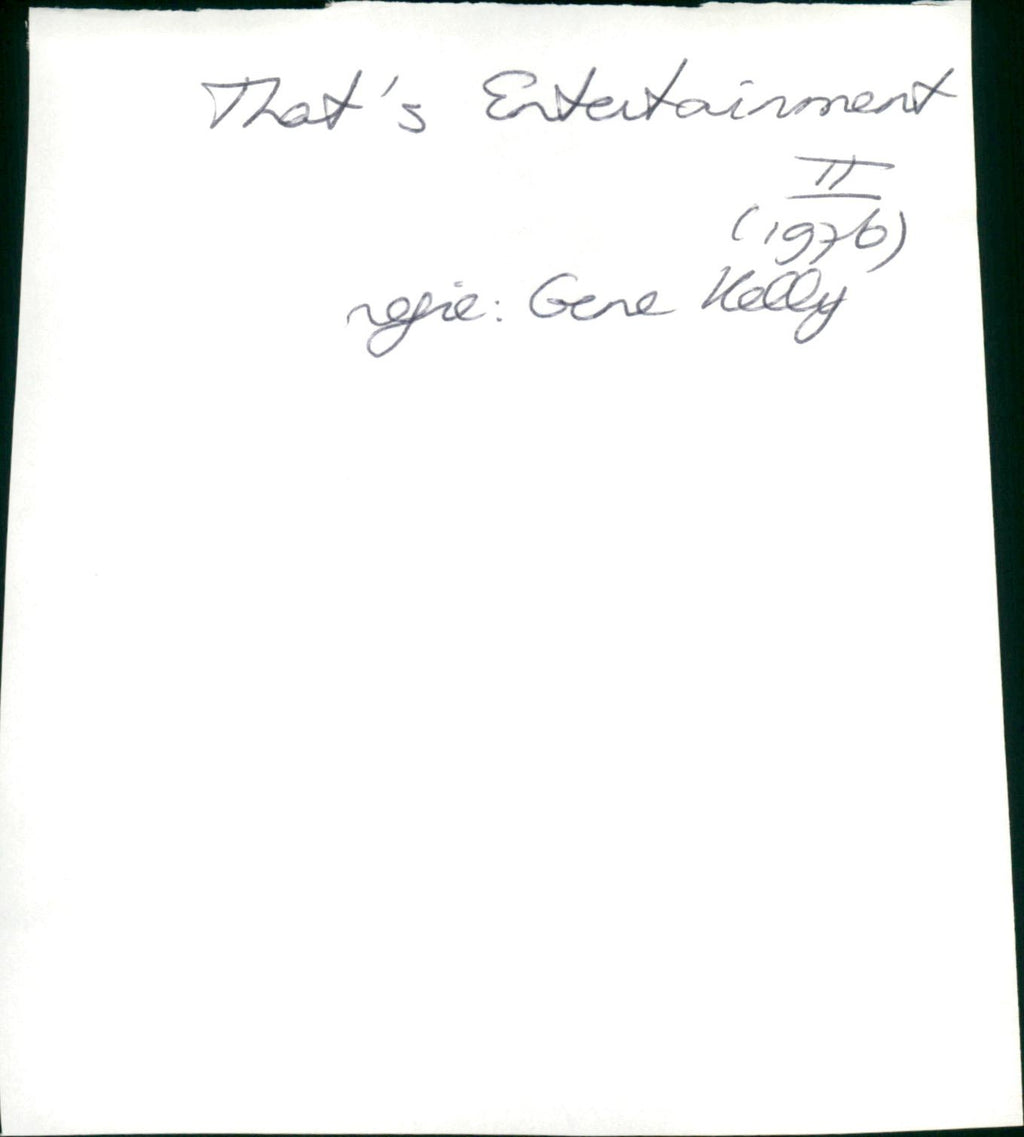 That's Entertainment
II
(1976)
regie: Gene Kelly